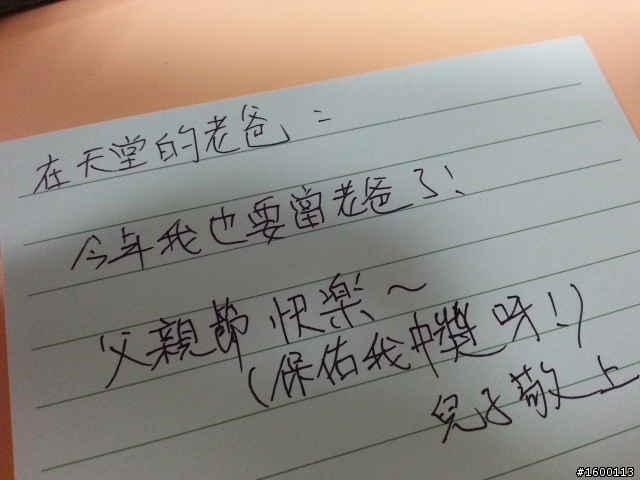 在天堂的老爸：
今年我也要當老爸了！
父親節快樂～
(保佑我中獎呀！)
兒子敬上
#1600113